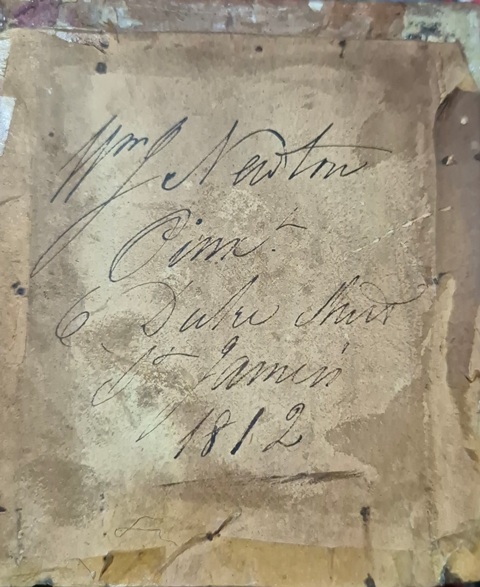 Wm J Newton
Pinxt
6 Duke Street
St James's
1812